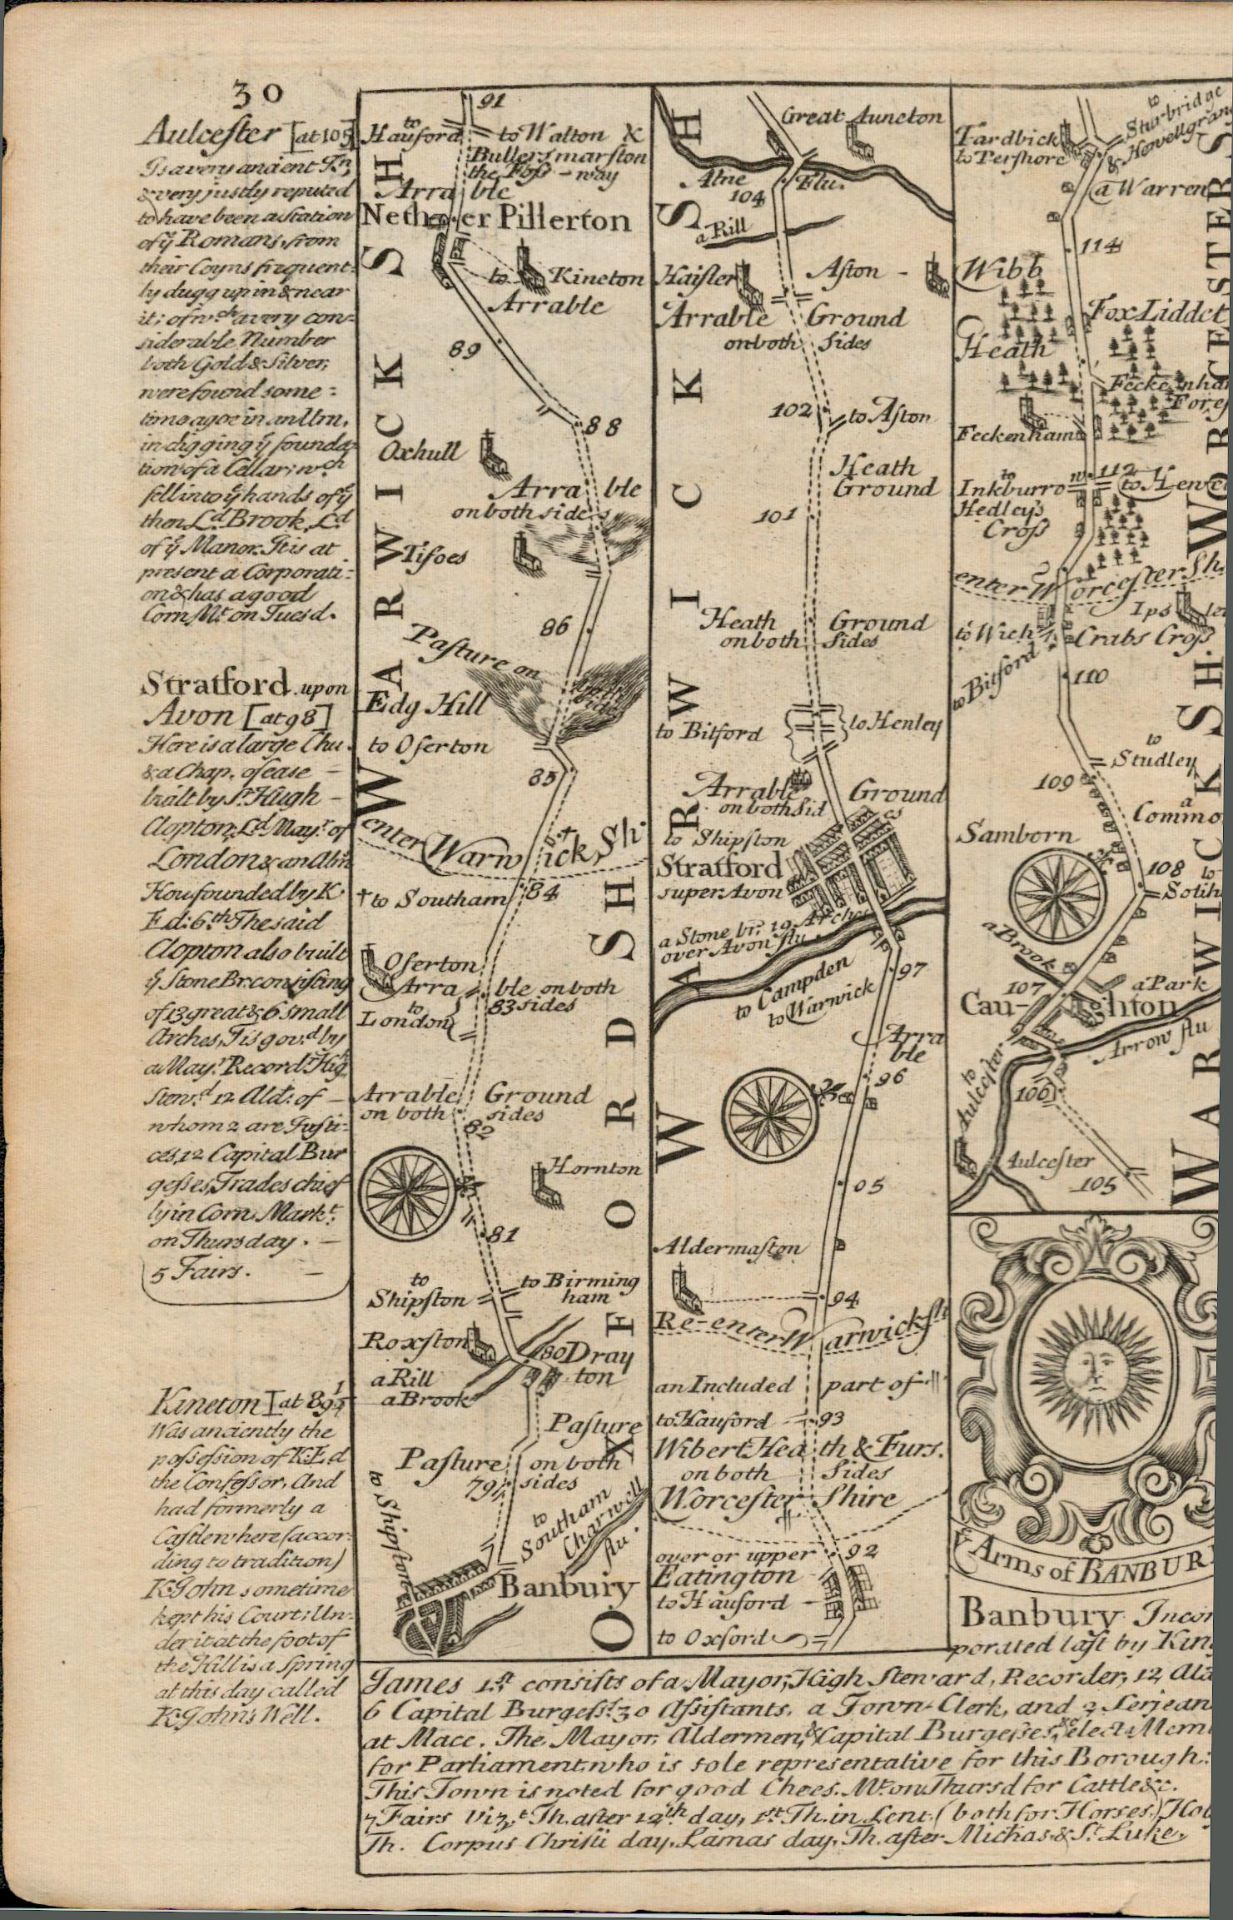 30
Aulcester [at 105]
Is a very ancient Tn,
& very justly reputed
to have been a Station
of ye Romans, from
their Coyns frequent:
ly dugg up in & near
it; of wch a very con=
siderable Number
both Gold & Silver,
were found some =
time agoe in an Urn,
in digging ye founda
tion of a Cellar; wch
fell into ye hands of ye
then Ld. Brook, Ld
of ye Manor. It is at
present a Corporati=
on & has a good
Corn Mt. on Tuesd.
Stratford upon
Avon [at 98]
Here is a large Chu.
& a Chap. of ease
built by Sr. Hugh
Clopton, Ld. Mayr. of
London & an Alms
House founded by K.
Ed: 6th The said
Clopton also built
ye Stone Br. consisting
of 13 great & 6 small
Arches, Tis gov:d by
a Mayr. Recordr. Hig
Stewd. 12 Ald: of
whom 2 are Justi=
ces, 12 Capital Bur
gesses, Trades chief
ly in Corn. Markt.
on Thursday.
5 Fairs.
Kineton [at 89¼
Was anciently the
possession of K. Ed
the Confessor, And
had formerly a
Castle where (accor=
ding to tradition)
K. John sometime
kept his Court; Un=
der it at the foot of
the Hill is a Spring
at this day called
K. John's Well.
91
to Hauford
to Walton &
Bullers marston
the Foss-way
Arra ble
Nether Pillerton
to Kineton
Arrable
89
88
Oxhull
Arra ble
on both sides
Tisoes
86
Pasture on both sides
Edg Hill
to Oserton
85
enter Warwick Sh.
to Southam
84
Oserton
Arra ble on both
83 sides
to London
Arrable Ground
on both sides
82
Hornton
81
to Shipston
to Birming
ham
Roxston
80 Dray
ton
a Rill
a Brook
Pasture
Pasture on both
79 sides
to Southam
Charwell flu.
to Shipston
Banbury
WARWICK SH
OXFORD SH
Great Auncton
Alne Flu.
104
a Rill
Haisler
Aston
Arrable Ground
on both Sides
102
to Aston
Heath
Ground
101
Heath Ground
on both Sides
to Bitford
to Henley
Arrable Ground
on both Sid es
to Shipston
Stratford
super Avon
a Stone br. 19 Arches
over Avon flu.
to Campden
to Warwick
97
Arra
ble
96
95
Aldermaston
94
Re-enter Warwick sh
an Included part of
to Hauford
93
Wibert Hea th & Furs.
on both Sides
Worcester Shire
over or upper
92
Eatington
to Hauford
to Oxford
WARWICK SH
Tardbick
to Pershore
to Sturbridge
& Hovellgran
a Warren
114
Wibb
Heath
Fox Liddet
Feckenha
Fores
Feckenham
112
to Inkburro
to Henl
Hedleys
Cross
enter Worcester Sh.
Ips ley
to Wich
Crabs Cross
to Bitford
110
to Studley
109
a Commo
Samborn
108
to Solih
a Brook
107
a Park
Cau- ghton
Arrow flu
to Aulcester
106
Aulcester
105
WARWICK SH.
WORCESTER S
ye Arms of BANBUR
Banbury Incor
porated last by King
James 1.st consists of a Mayor, High Steward, Recorder, 12 Ald
6 Capital Burgess:s 30 Assistants, a Town-Clerk, and 2 Serjean
at Mace. The Mayor, Aldermen, & Capital Burgesses, elect a Mem
for Parliament who is sole representative for this Borough:
This Town is noted for good Chees. Mt. on Thursd for Cattle &c.
7 Fairs viz.t Th. after 12th day, 1st Th. in Lent (both for Horses,) Hol
Th. Corpus Christi day, Lamas day, Th. after Michas: & St. Luke.